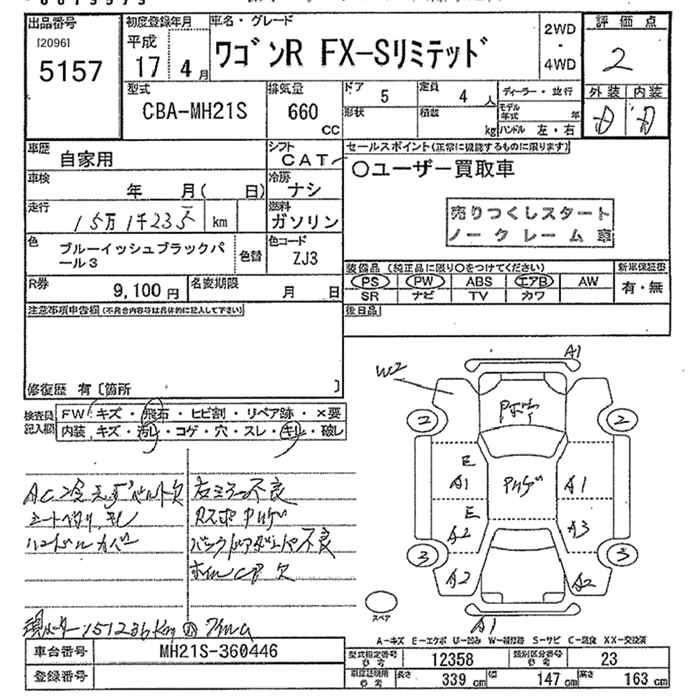 出品番号
I20961
5157
初度登録年月
平成
17 4月
車名・グレード
ワゴンR FX-Sリミテッド
2WD
・
4WD
評価点
2
外装 内装
型式
CBA-MH21S
排気量
660
CC
ドア 5
定員 4 人
形状
積載 kg
ディーラー・並行
モデル年式 年
ハンドル 左・右
車歴
自家用
シフト
CAT
セールスポイント(正常に機能するものに限ります)
○ユーザー買取車
売りつくしスタート
ノークレーム車
車検
年 月( 日)
冷房
ナシ
走行
km
燃料
ガソリン
色
ブルーイッシュブラックパール3
色替
色コード
ZJ3
装備品 (純正品に限り○をつけてください)
PS PW ABS エアB AW
SR ナビ TV カワ
新車保証書
有・無
R券
9,100円
名変期限
月 日
後日品
注意事項申告欄(不具合内容等は具体的に記入して下さい)
修復歴 有[箇所 ]
検査員記入欄
FW キズ・飛石・ヒビ割・リペア跡・×要
内装 キズ・汚れ・コゲ・穴・スレ・キレ・破レ
右ミラー不良
ハンドルカバー
W2
A1
2
2
E
A1
A1
E
A2
A3
3
3
A2
A2
A1
スペア
A-キズ E-エクボ U-凹み W-補修跡 S-サビ C-腐食 XX-交換済
車台番号
MH21S-360446
登録番号
型式指定番号 参考
12358
類別区分番号 参考
23
車検証記載 参考
長さ 339 cm
幅 147 cm
高さ 163 cm